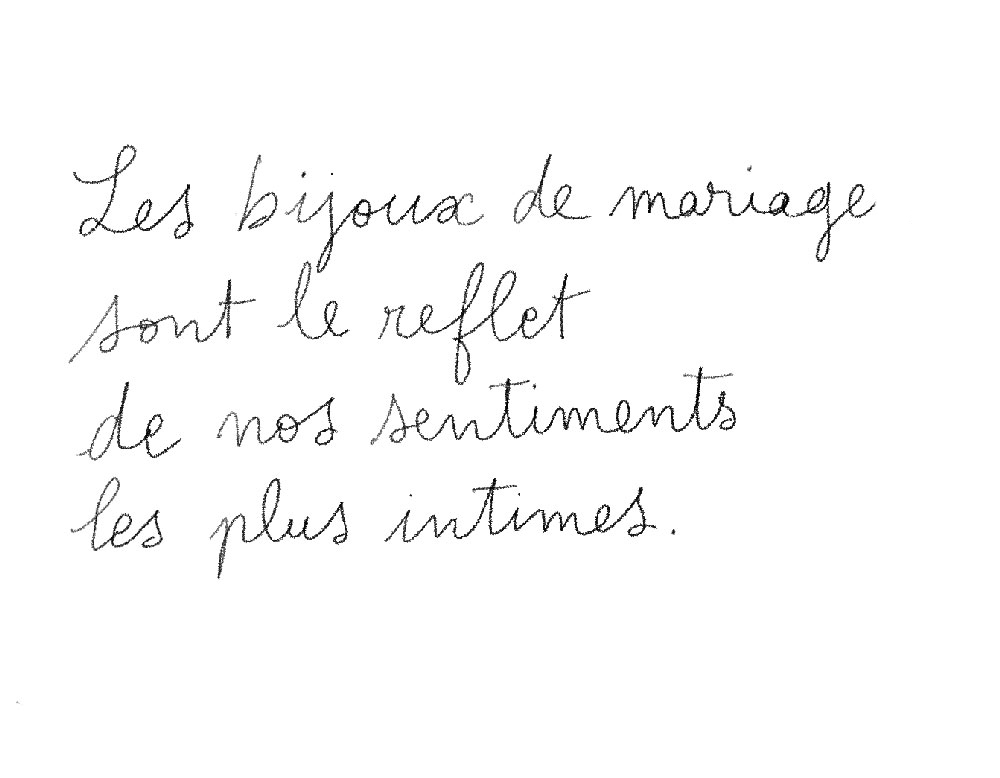 Les bijoux de mariage
sont le reflet
de nos sentiments
les plus intimes.